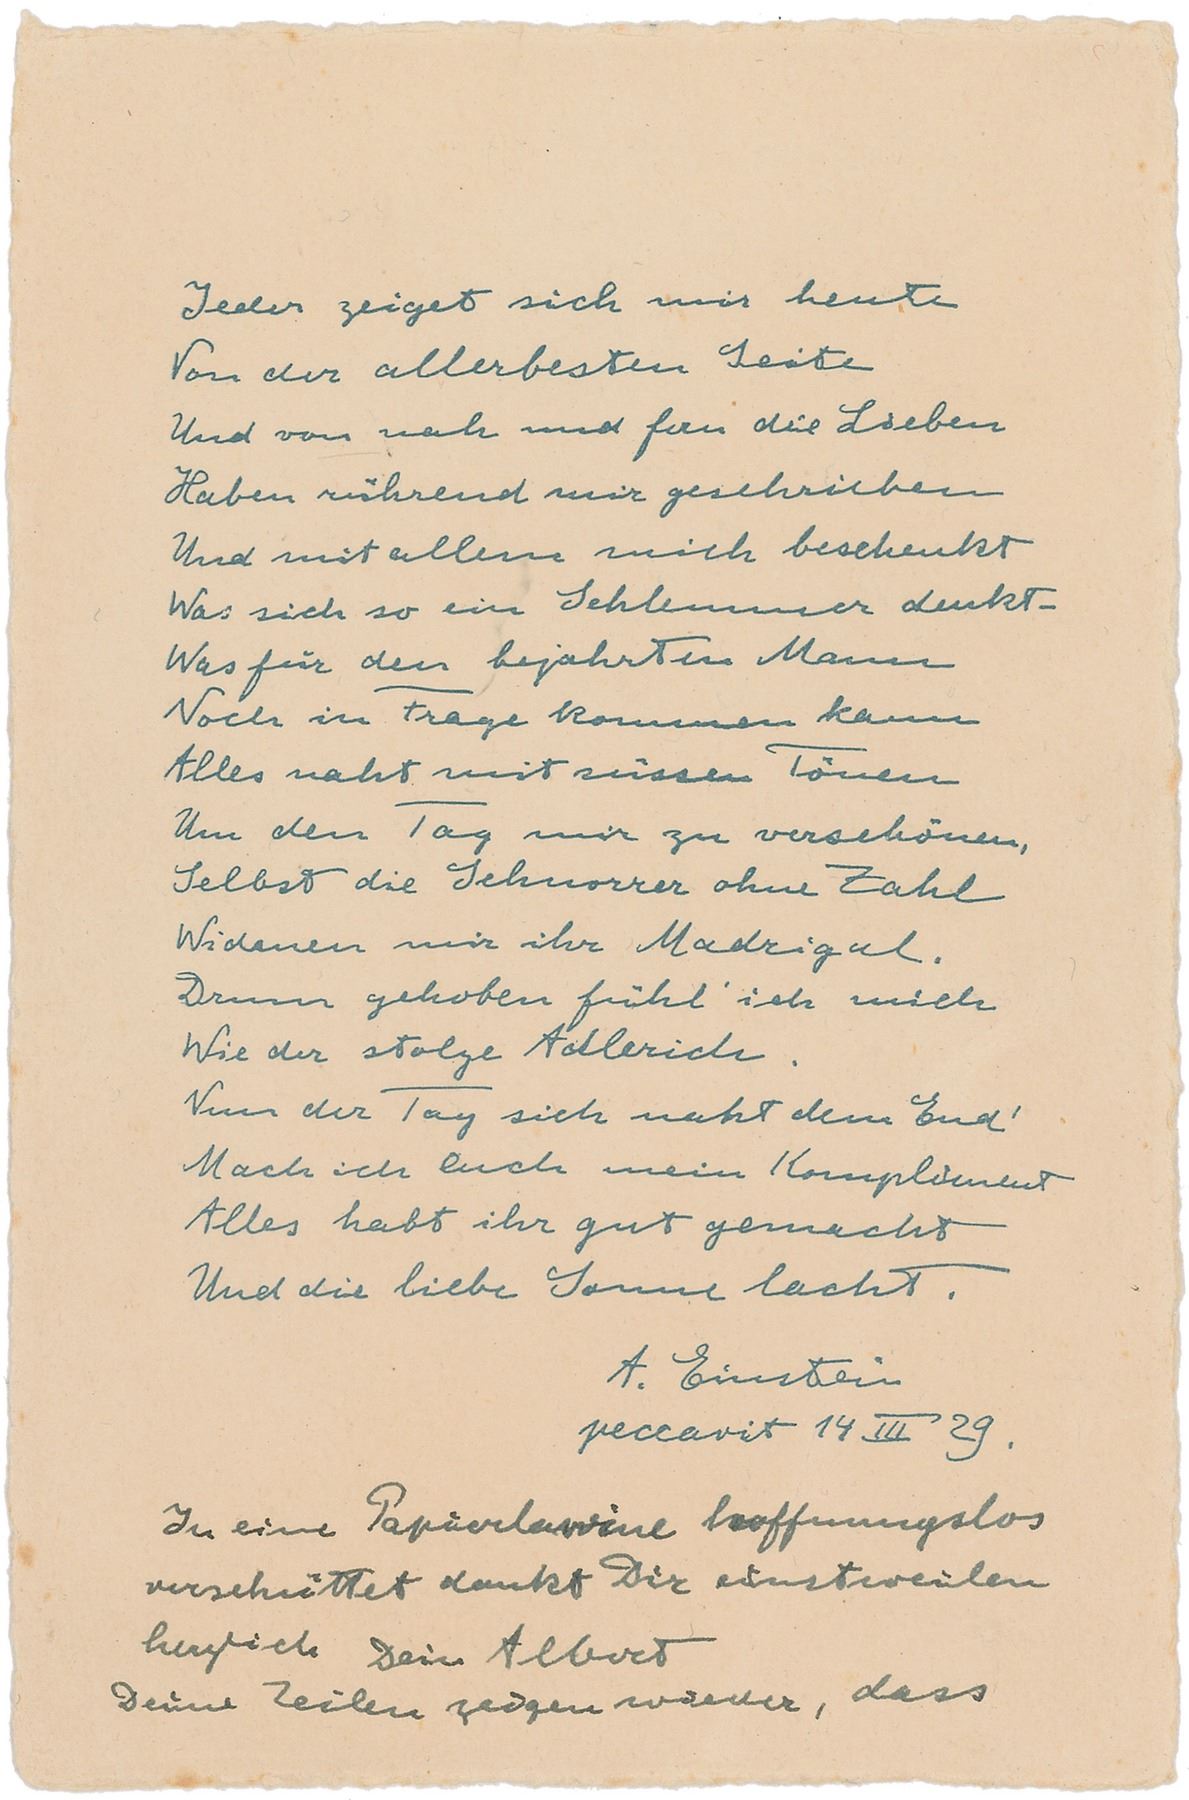 Jeder zeiget sich mir heute
Von der allerbesten Seite
Und von nah und fern die Lieben
Haben rührend mir geschrieben
Und mit allem mich beschenkt
Was sich so ein Schlemmer denkt –
Was für den bejahrten Mann
Noch in Frage kommen kann
Alles naht mit süssen Tönen
Um den Tag mir zu verschönen,
Selbst die Schnorrer ohne Zahl
Widmen mir ihr Madrigal.
Drum gehoben fühl' ich mich
Wie der stolze Adlerich.
Nun der Tag sich naht dem End'
Mach ich Euch mein Kompliment
Alles habt ihr gut gemacht
Und die liebe Sonne lacht.
A. Einstein
peccavit 14 III 29.
In eine Papierlawine hoffnungslos
verschüttet dankt Dir einstweilen
herzlich Dein Albert
Deine Zeilen zeigen wieder, dass